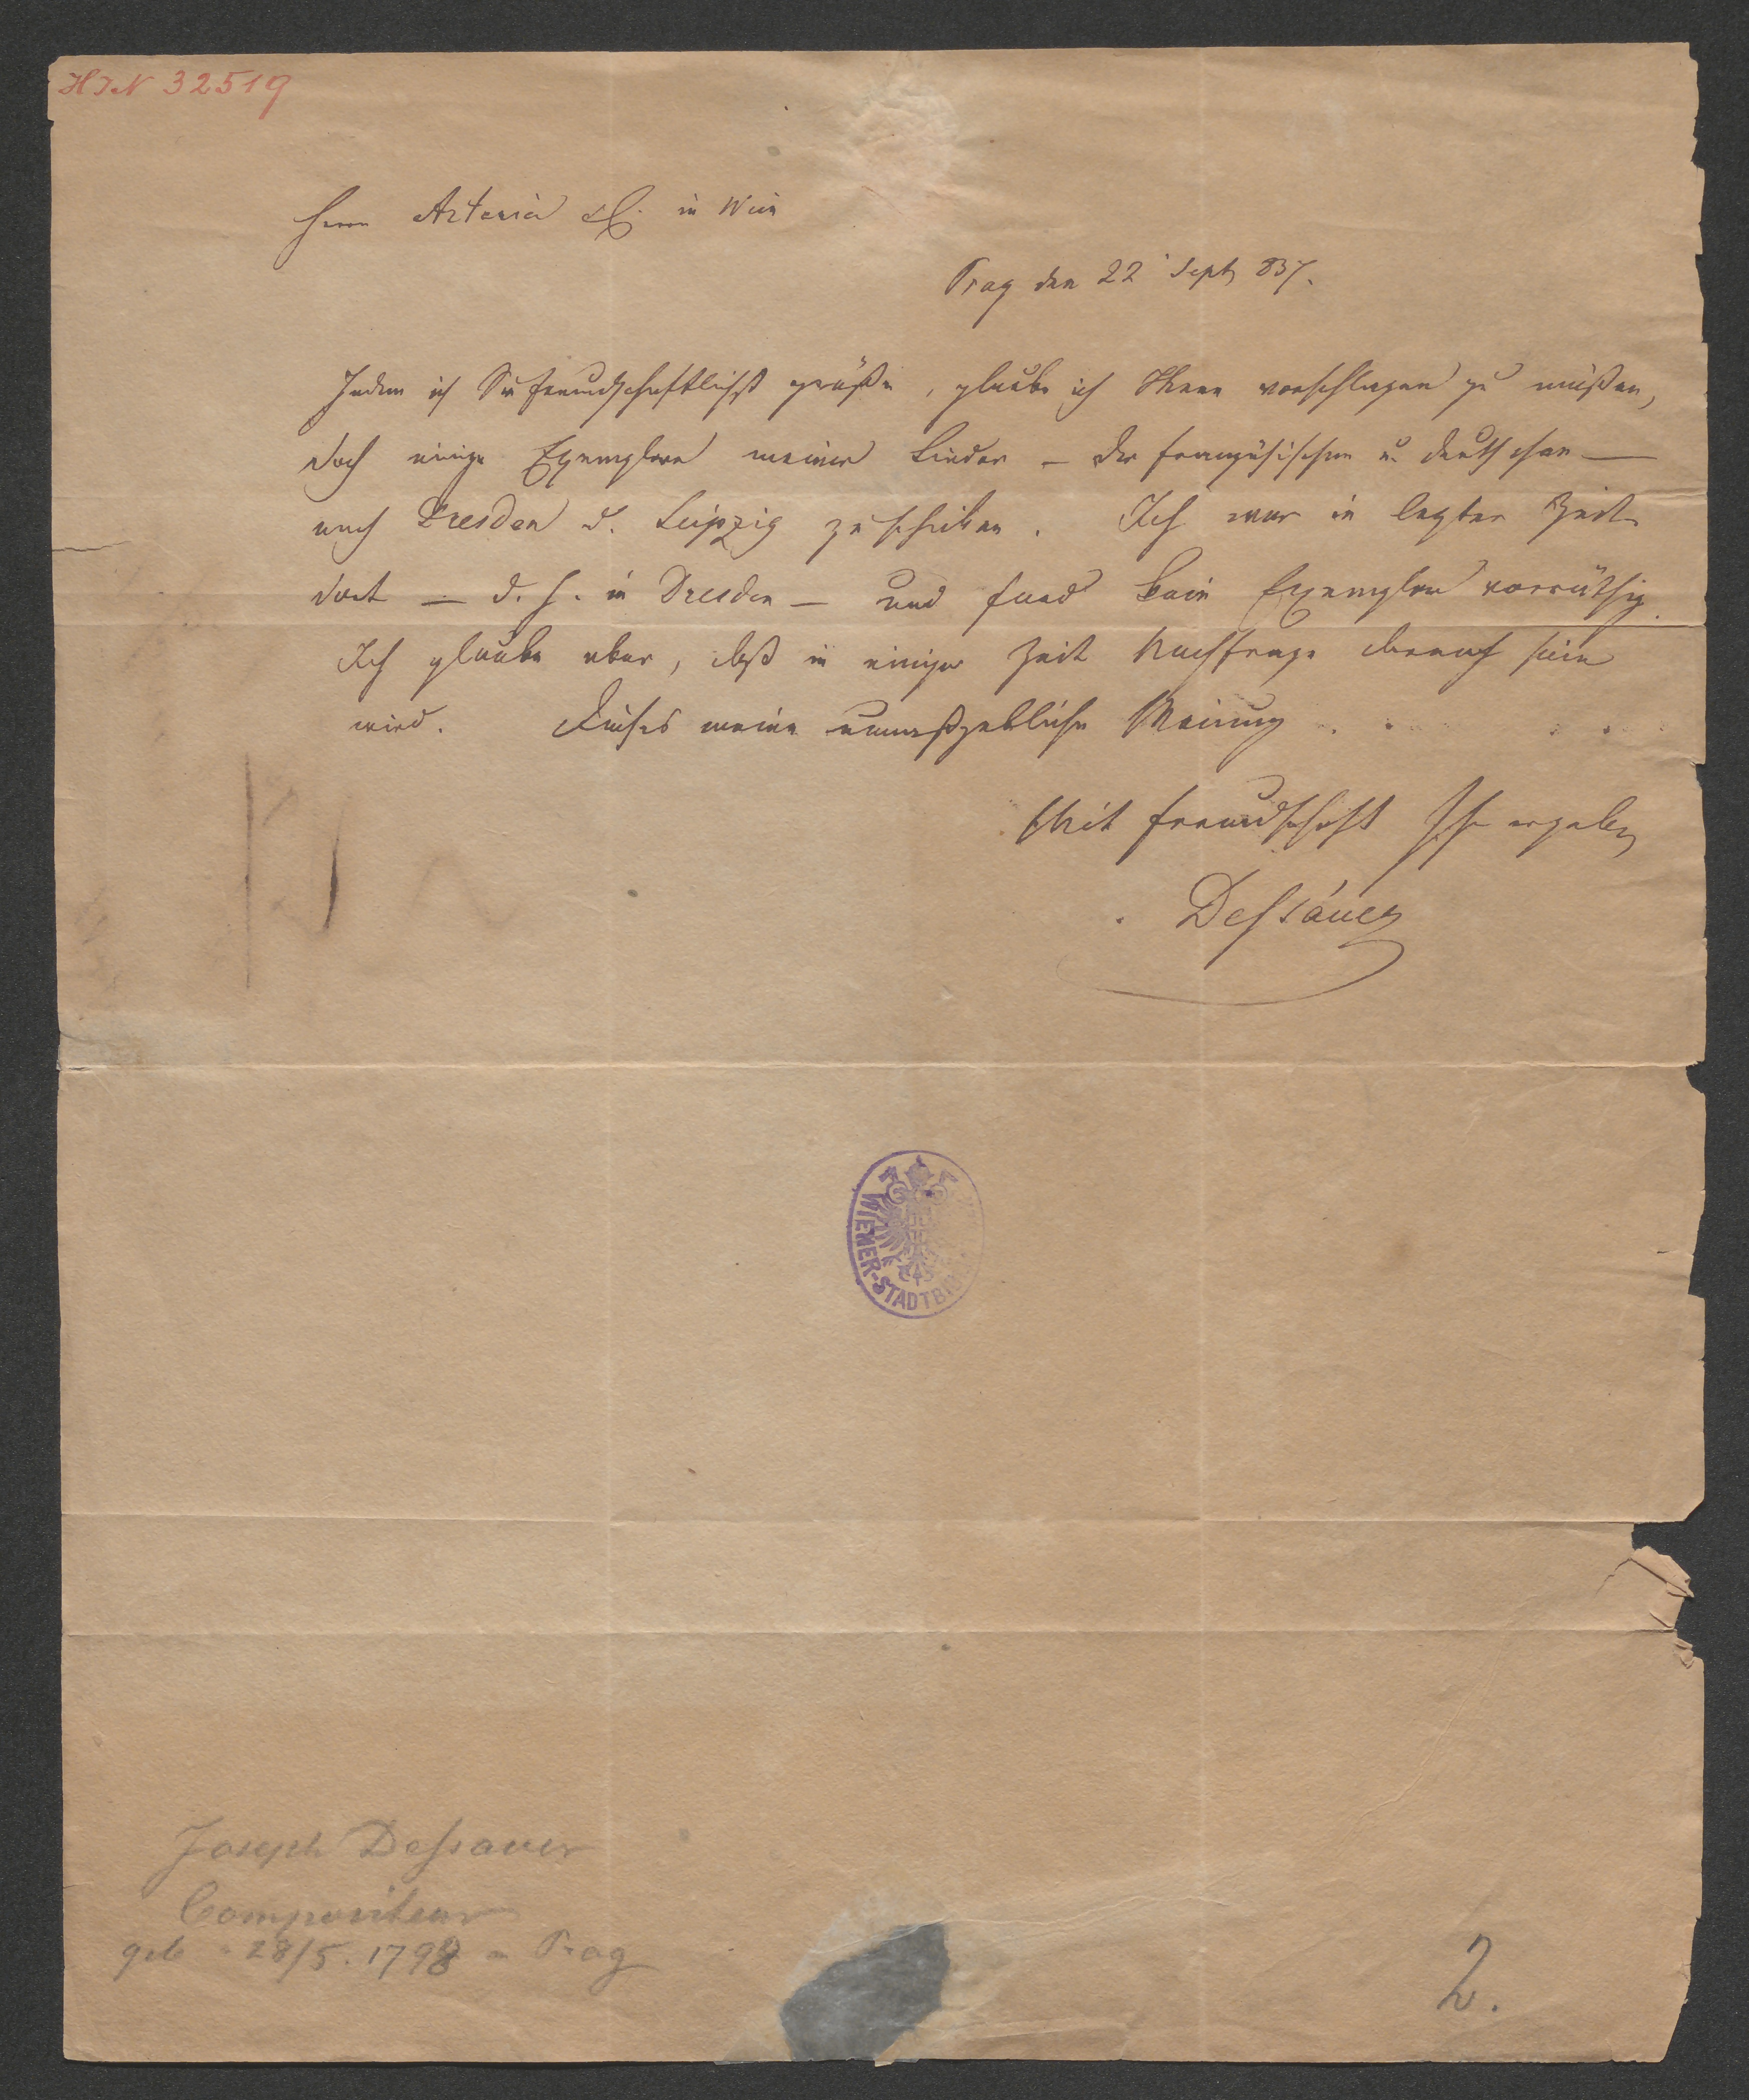 HIN 32519
Herrn Artaria & C. in Wien
Prag den 22 Sept 837.
Indem ich Sie freundschaftlichst grüße, glaube ich Ihnen vorschlagen zu müßen,
doch einige Exemplare meiner Lieder – der französischen u. deutschen –
nach Dresden u. Leipzig zu schicken. Ich war in letzter Zeit
dort – d. h. in Dresden – und fand kein Exemplar vorräthig.
Ich glaube aber, daß in einiger Zeit Nachfrage darauf sein
wird. Dieses meine unmaßgebliche Meinung . .
Mit Freundschaft Ihr ergeben
Dessauer
WIENER-STADTBI
Joseph Dessauer
Compositeur
geb. 28/5. 1798 in Prag
2.